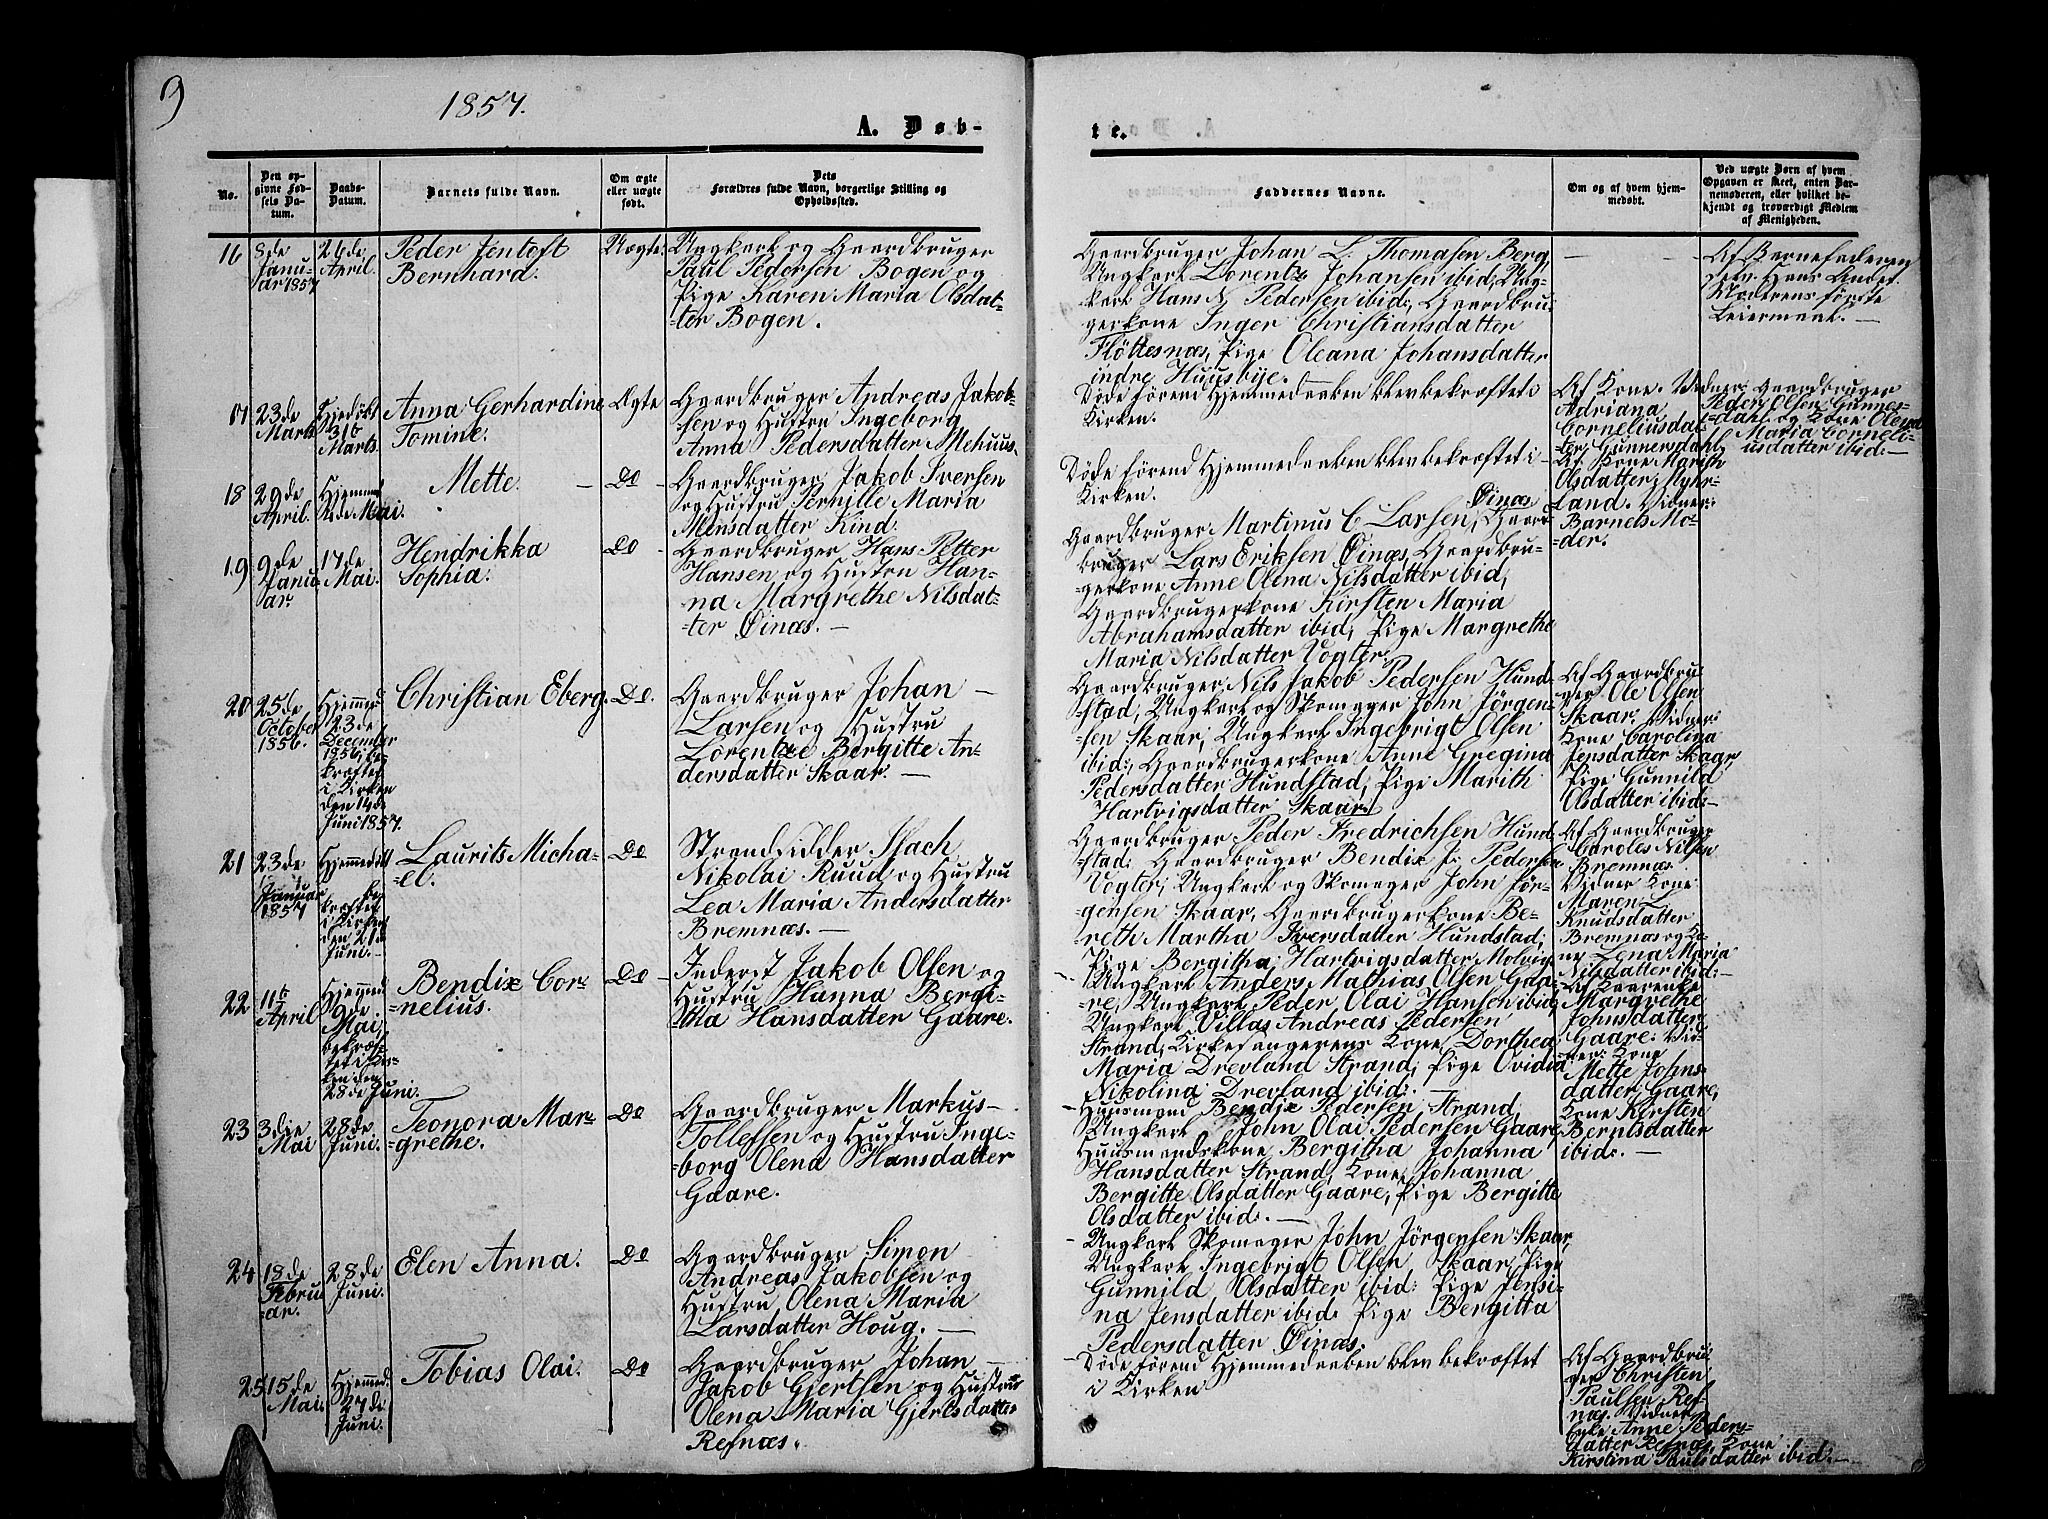 9
1857.
A. Døb-
te.
No.
Den op-
givne Fød-
sels Da-
tum.
Daabs-
Datum.
Barnets fulde Navn.
Om ægte
eller uægte
født.
Dets
Forældres fulde Navn, borgerlige Stilling og
Opholdssted.
Faddernes Navne.
Om og af hvem hjem-
medøbt.
Ved uægte Børn af hvem
Opgaven er skeet, enten Bar-
nemoderen, eller hvilket be-
kjendt og troværdigt Medlem
af Menigheden.
16
8de
Janu-
ar 1857
26de
April.
Peder Jentoft
Bernhard.
Uægte.
Ungkarl og Gaardbruger
Paul Pedersen Bogen og
Pige Karen Maria Olsdat-
-ter Bogen.
Gaardbruger Johan L. Thomasen Berg,
Ungkarl Lorents Johansen ibid, Ung-
karl Hans N. Pedersen ibid:, Gaardbru-
gerkone Inger Christiansdatter
Fløttesnæs, Pige Oleana Johansdatter
indre Huusbye. —
Af Barnefaderen
selv. Hans Andet.
Modrens første
Leiermaal. —
17
23de
Marts
Hjedøbt
31te
Marts.
Anna Gerhardine
Tomine.
Ægte
Gaardbruger Andreas Jakob-
sen og Hustru Ingeborg
Anna Pedersdatter Mehuus.
Døde førend Hjemmedaaben blev bekræftet i
Kirken.
Af Kone
Adriana
Corneliusdat-
ter Gunnersdahl,
Vidner: Gaardbruger
Peder Olsen Gunners-
-dahl og Kone Olena
Maria Corneli-
usdatter ibid: —
18
29de
April.
Hjemmed
de Mai.
Mette. —
Do —
Gaardbruger Jakob Iversen
og Hustru Pernille Maria
Monsdatter Kind.
Døde førend Hjemmedaaben blev bekræftet i
Kirken.
Af Kone Marith
Olsdatter Myhr-
land. Vidner:
Barnets Mo-
-der.
19
9de
Janu-
ar.
17de
Mai.
Hendrikka
Sophia.
Do —
Gaardbruger Hans Petter
Hansen og Hustru Han-
na Margrethe Nilsdat-
-ter Øinæs. —
Gaardbruger Martinus C Larsen Øinæs, Gaard-
bruger Lars Eriksen Øinæs, Gaardbru-
-gerkone Anne Olena Nilsdatter ibid,
Gaardbrugerkone Kirsten Maria
Abrahamsdatter ibid; Pige Margrethe
Maria Nilsdatter Vogter.
20
25de
October
1856.
Hjemmed
23de
December
1856, be-
kræftet
i Kirken
den 14de
Juni 1857.
Christian Eberg.
Do.
Gaardbruger Johan —
Larsen og Hustru
Lorentze Bergitte An-
dersdatter Skaar. —
Gaardbruger Nils Jakob Pedersen Hund-
-stad, Ungkarl og Skomager John Jørgen-
sen Skaar, Ungkarl Ingebrigt Olsen
ibid:, Gaardbrugerkone Anne Gregina
Pedersdatter Hundstad, Pige Marith
Hartvigsdatter Skaar.
Af Gaardbru-
ger Ole Olsen
Skaar. Vidner:
Kone Carolina
Jensdatter Skaar,
Pige Gunnild
Olsdatter ibid: —
21
23de
Januar
1857
Hjemmedøbt
be-
kræftet
i Kirken
den 21de
Juni. —
Laurits Micha-
el.
Do
Strandsidder Isach
Nikolai Ruud og Hustru
Lea Maria Andersdatter
Bremnæs. —
Gaardbruger Peder Fredrichsen Hund-
-stad; Gaardbruger Bendix J. Pedersen
Vogter, Ungkarl og Skomager John Jør-
-gensen Skaar, Gaardbrugerkone Be-
reth Martha Iversdatter Hundstad,
Pige Bergitha Hartvigsdatter Molvig.
Af Gaardbruger
Caroles Nilsen
Bremnæs.
Vidner Kone
Maren
Knudsdatter
Bremnæs og Ko-
ne Lena Maria
Nilsdatter ibid: —
22
11te
April
Hjemmed
9de
Mai,
bekræf-
tet i Kir-
ken den
28de Juni.
Bendix Cor-
-nelius.
Do —
Inderst Jakob Olsen og
Hustru Hanna Bergi-
tha Hansdatter Gaare.
Ungkarl Anders Mathias Olsen Gaa-
re, Ungkarl Peder Olai Hansen ibid,
Ungkarl Villas Andreas Pedersen
Strand, Kirkesangerens Kone Dorthea
Maria Drevland Strand, Pige Ovidia
Nikolina Drevland ibid: —
Margrethe
Johnsdatter
Gaare. Vid-
ner: Kone
Mette Johns-
datter Gaare,
Kone Kirsten
Berntsdatter
ibid: —
23
3die
Mai
28de
Juni.
Teonora Mar-
-grethe.
Do
Gaardbruger Markus
Tollefsen og Hustru Inge-
-borg Olena Hansdatter
Gaare.
Huusmand Bendix Pedersen Strand,
Ungkarl John Olai Pedersen Gaare,
Huusmandskone Bergitha Johanna
Hansdatter Strand, Kone Johanna
Bergitte Olsdatter Gaare, Pige Bergitte
Olsdatter ibid:. —
24
18de
Febru-
-ar.
28de
Juni.
Elen Anna.
Do
Gaardbruger Simon
Andreas Jakobsen og
Hustru Olena Maria
Larsdatter Houg. —
Ungkarl Skomager John Jørgensen Skaar,
Ungkarl Ingebrigt Olsen Skaar, Pige
Gunnild Olsdatter ibid: Pige Jensi-
na Jensdatter ibid: Pige Bergitta
Pedersdatter Øinæs.
25
15de
Mai.
Hjemmed.
27de
Juni.
Tobias Olai.
Do
Gaardbruger Johan —
Jakob Gjertsen og Hustru
Olena Maria Gjertsdatter
Refnæs.
Døde førend Hjemmedaaben blev bekræftet
i Kirken
Af Gaardbru-
ger Christen
Paulsen Ref-
næs. Vidner
Enke Anne Peders-
datter Refnæs, Kone
Kirstina Paulsdatter ibid: —